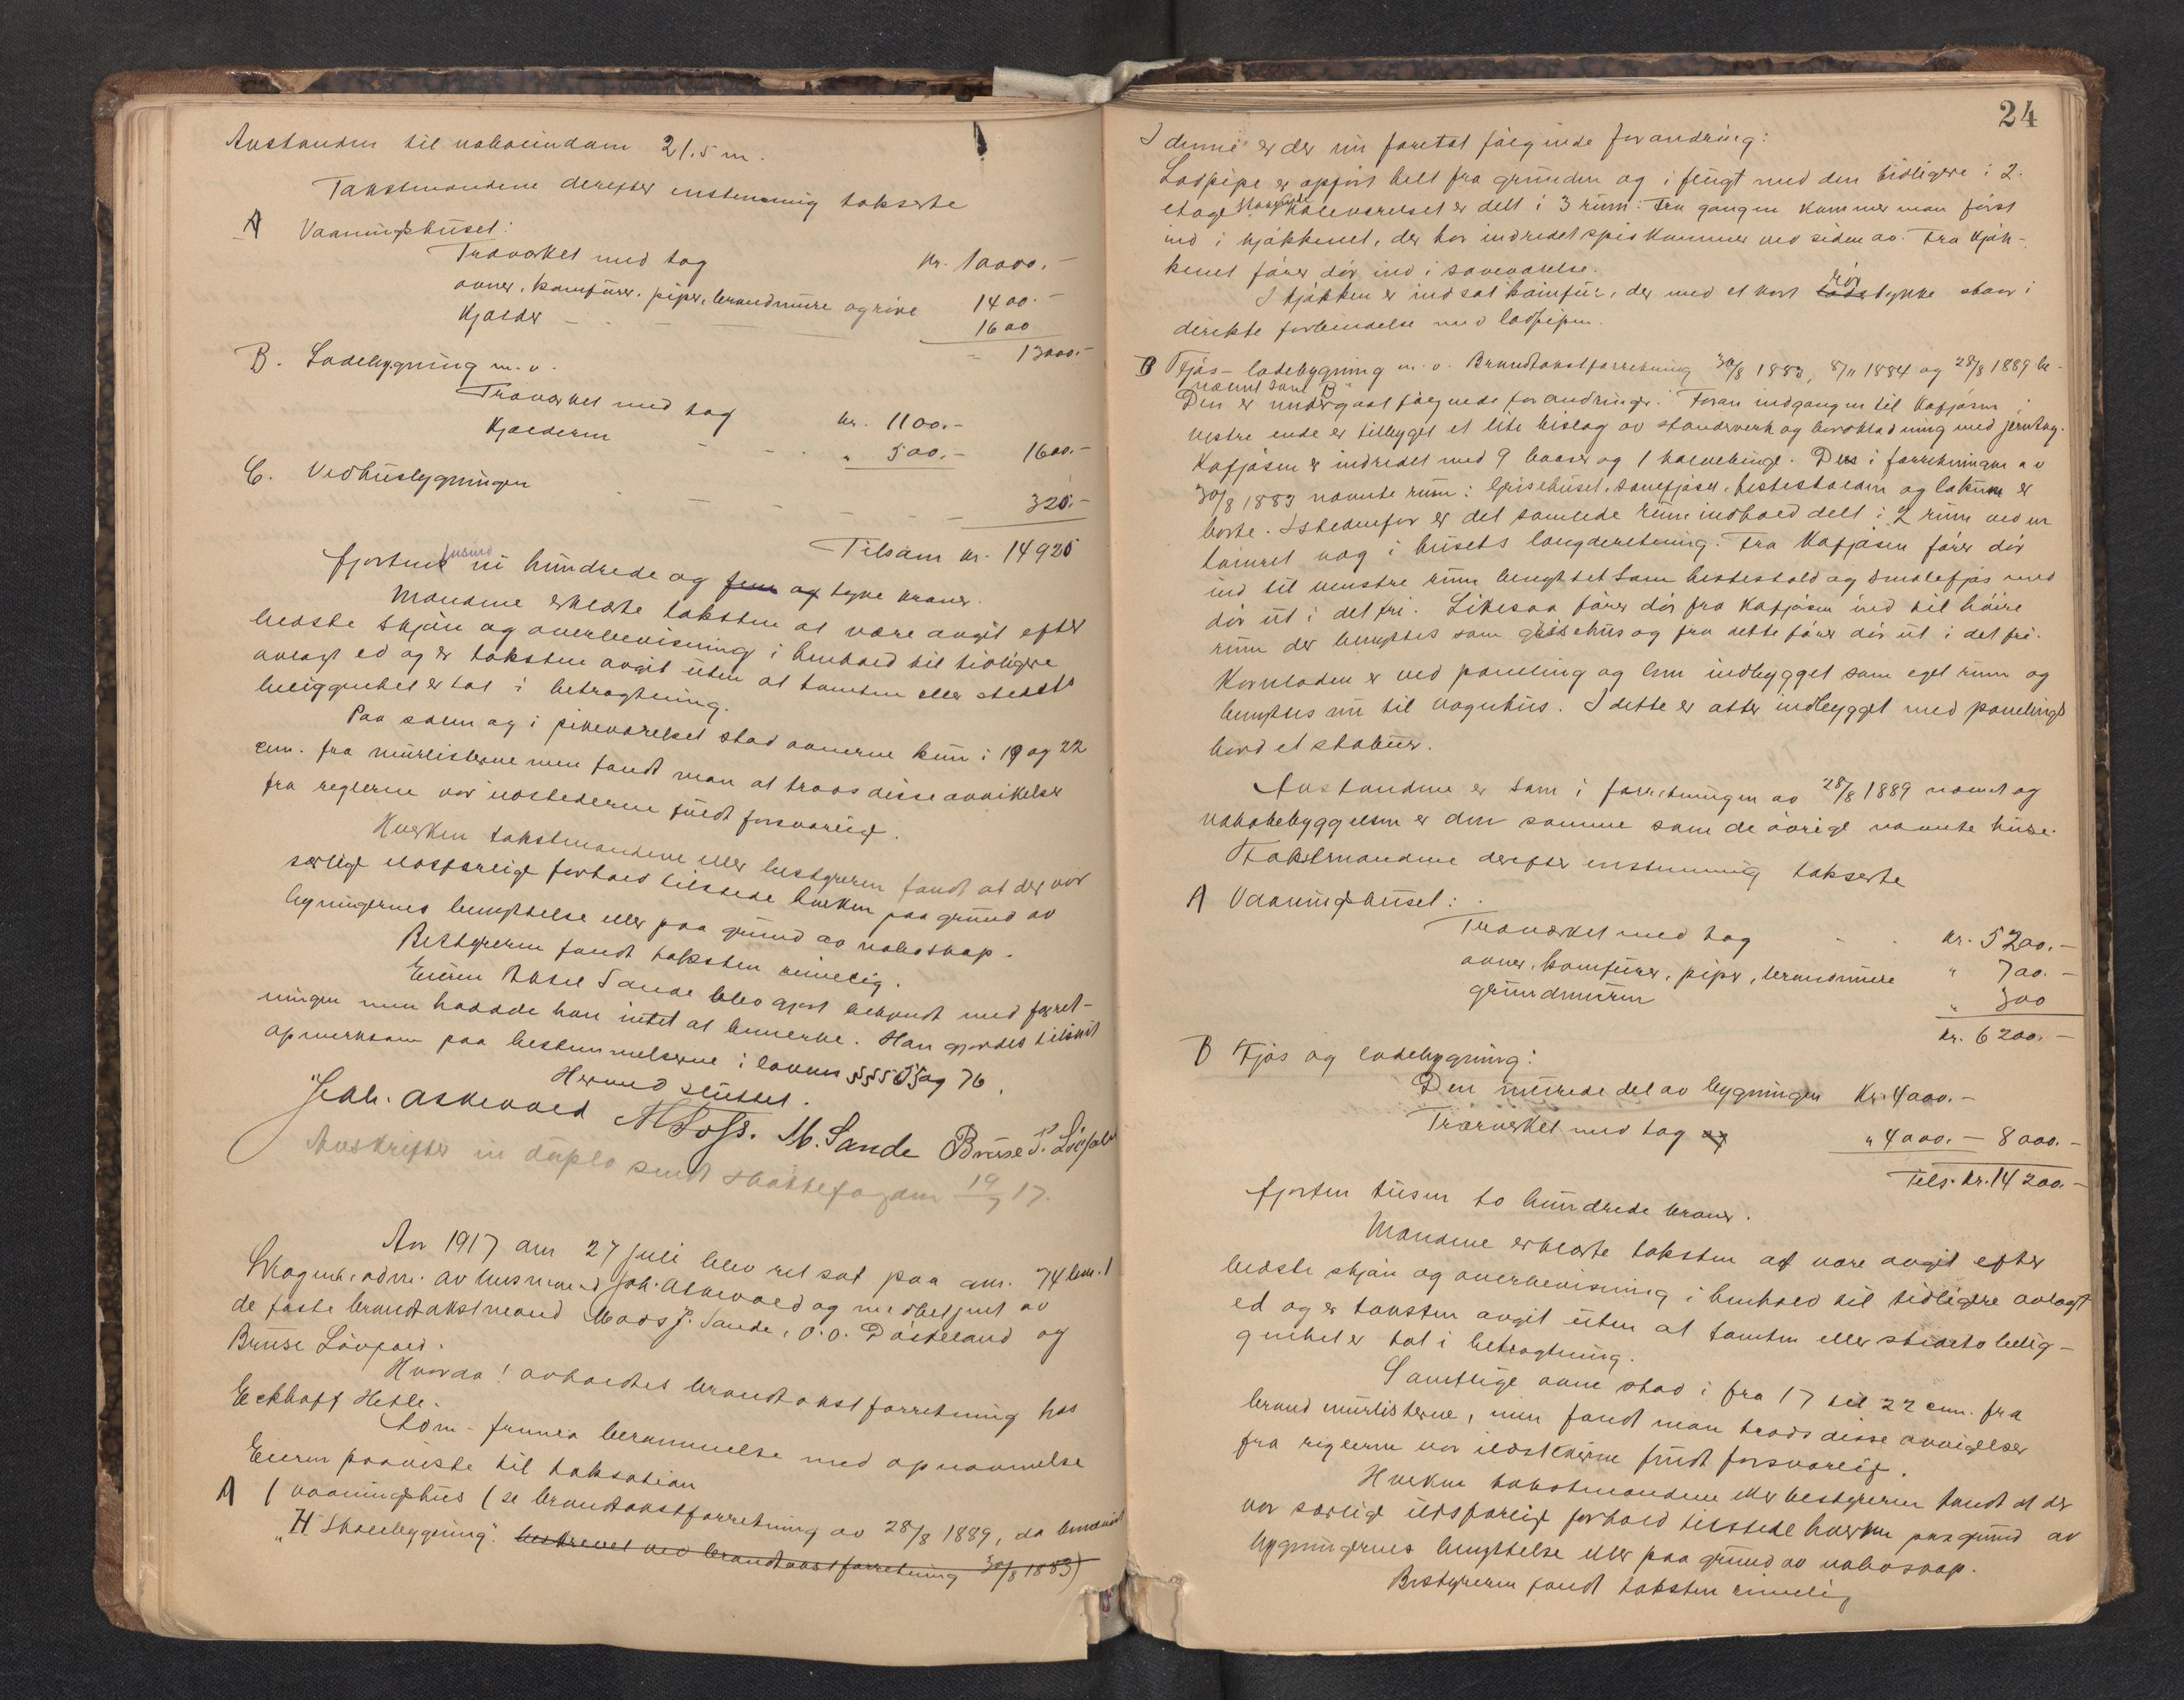 Avstanden til naboeiendom 21.5 m.
Takstmændene derefter enstemmig takserte
A Vaaningshuset:
Træverket med tag kr. 10000.-
ovner, komfurer, piper, brandmure og rive 1400.-
Kjælder - - - 1600
- 13000.-
B. Ladebygning m.v.
Træverket med tag kr. 1100.-
Kjælderen - - " 500.- 1600.-
C. Vedhusbygningen - - - - 320.-
Tilsam kr. 14920
fjorten tusind ni hundrede og fem og tyve kroner.
Mændene erklærte taksten at være avgit efter
bedste skjøn og overbevisning i henhold til tidligere
avlagt ed og er taksten avgit uten at tomten eller stedets
beliggenhet er tat i betragtning.
Paa salen og i pikeværelset stod ovnerne kun i 19 og 22
cm. fra murlisterne men fandt man at trods disse avvikelser
fra reglerne var ildstederne fuldt forsvarlig.
Hverken takstmændene eller bestyreren fandt at der var
særlige ildsfarlige forhold tilstede hverken paa grund av
bygningernes benyttelse eller paa grund av naboskap.
Bestyreren fandt taksten rimelig.
Eieren Aksel Sande blev gjort bekjendt med forret-
ningen men hadde han intet at bemerke. Han gjordes tilsist
opmerksom paa bestemmelserne i lovens §§ 55 og 76.
Hermed sluttet.
Joh. Askevold M Foss. M. Sande Bruse P. Løvfald
Avskrifter in duplo sendt skattefogden 19/7 17.
Aar 1917 den 27 juli blev ret sat paa gnr. 74 bnr. 1
av lensmand Joh. Askevold og medbetjent av
de faste brandtakstmænd Mads J. Sande, O. O. Døskeland og
Bruse Løvfald.
Hvorda! avholdtes brandtakstforretning hos
Eckhoff Hetle.
Dom- fremla berammelse med opnævnelse
Eieren paaviste til taksation
A 1 vaaningshus (se brandtakstforretning av 28/8 1889, da benævnt
"H. Skolebygning". beskrevet ved brandtakstforretning 30/8 1883)
24
I denne er der nu foretat følgende forandring:
Ladpipe er opført helt fra grunden og i flugt med den tidligere i 2.
etage. Skoleværelset er delt i 3 rum: Fra gangen kommer man først
ind i kjøkkenet, der har indredet spiskammer ved siden av. Fra kjøk-
kenet fører dør ind i soveværelse.
I kjøkken er indsat komfur, der med et kort rørstykke staar i
direkte forbindelse med ladpipen.
B Fjøs- ladebygning m.v. Brandtakstforretning 30/8 1883, 8/11 1884 og 28/8 1889 be-
nævnt som "B"
Den er undergaat følgende forandringer. Foran indgangen til kofjøsen i
vestre ende er tilbygget et lite bislag av standerverk og bordklædning med jerntag.
Kofjøsen er indredet med 9 baaser og 1 kalvebinge. De i forretningen av
30/8 1883 nævnte rum: Grisehuset, sauefjøset, hestestalden og lakum er
borte. Istedenfor er det samlede rum indhold delt i 2 rum ved en
tømret væg i husets længderetning. Fra kofjøsen fører dør
ind til venstre rum benyttet som hestestald og smalefjøs med
dør ut i det fri. Likesaa fører dør fra kofjøsen ind til høire
rum der benyttes som grisehus og fra dette fører dør ut i det fri.
Kornladen er ved paneling og lem indbygget som eget rum og
benyttes nu til vognhus. I dette er atter indbygget med panelings
bord et stabur.
Avstandene er som i forretningen av 28/8 1889 nævnt og
nabobebyggelsen er den samme som de øvrige nævnte huse.
Takstmændene derefter enstemmig takserte
A Vaaningshuset:
Træverket med tag - . kr. 5200.-
ovner, komfurer, piper, brandmure " 700.-
grundmuren " 300
kr. 6200.-
B Fjøs og ladebygning:
Den murede del av bygningen Kr. 4000.-
Træverket med tag " 4000.- 8000.-
Tils. kr. 14200.-
fjorten tusen to hundrede kroner.
Mændene erklærte taksten at være avgit efter
bedste skjøn og overbevisning i henhold til tidligere avlagt
ed og er taksten avgit uten at tomten eller stedets belig-
genhet er tat i betragtning.
Samtlige ovne stod i fra 17 til 22 cm. fra
brand murlisterne, men fandt man trods disse avvigelser
fra reglerne var ildstederne fuldt forsvarlig.
Hverken takstmændene eller bestyreren fandt at der
var særlige ildsfarlige forhold tilstede hverken paa grund av
bygningernes benyttelse eller paa grund av naboskap.
Bestyreren fandt taksten rimelig